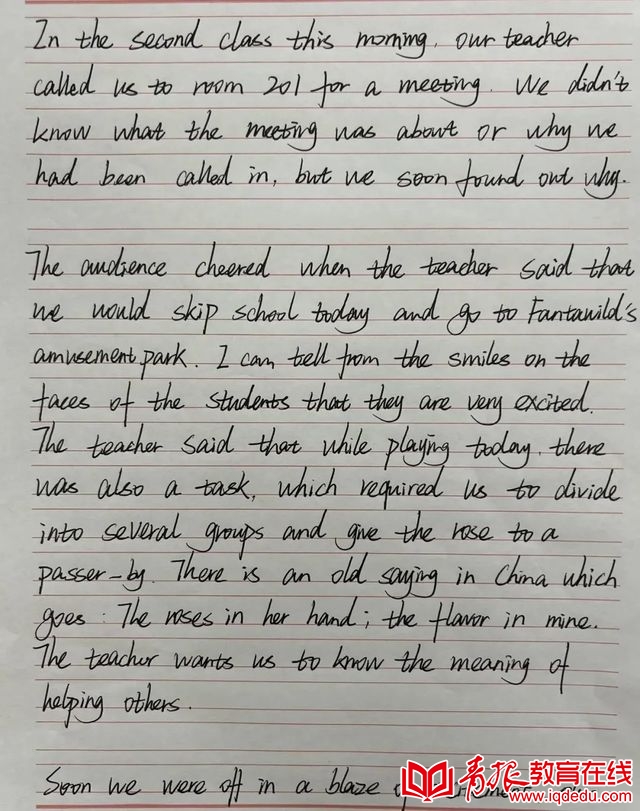 In the second class this morning, our teacher
called us to room 201 for a meeting. We didn't
know what the meeting was about or why we
had been called in, but we soon found out why.
The audience cheered when the teacher said that
we would skip school today and go to Fantawild's
amusement park. I can tell from the smiles on the
faces of the students that they are very excited.
The teacher said that while playing today, there
was also a task, which required us to divide
into several groups and give the rose to a
passer-by. There is an old saying in China which
goes: The roses in her hand; the flavor in mine.
The teacher wants us to know the meaning of
helping others.
Soon we were off in a blaze of
青报教育在线
www.iqdedu.com